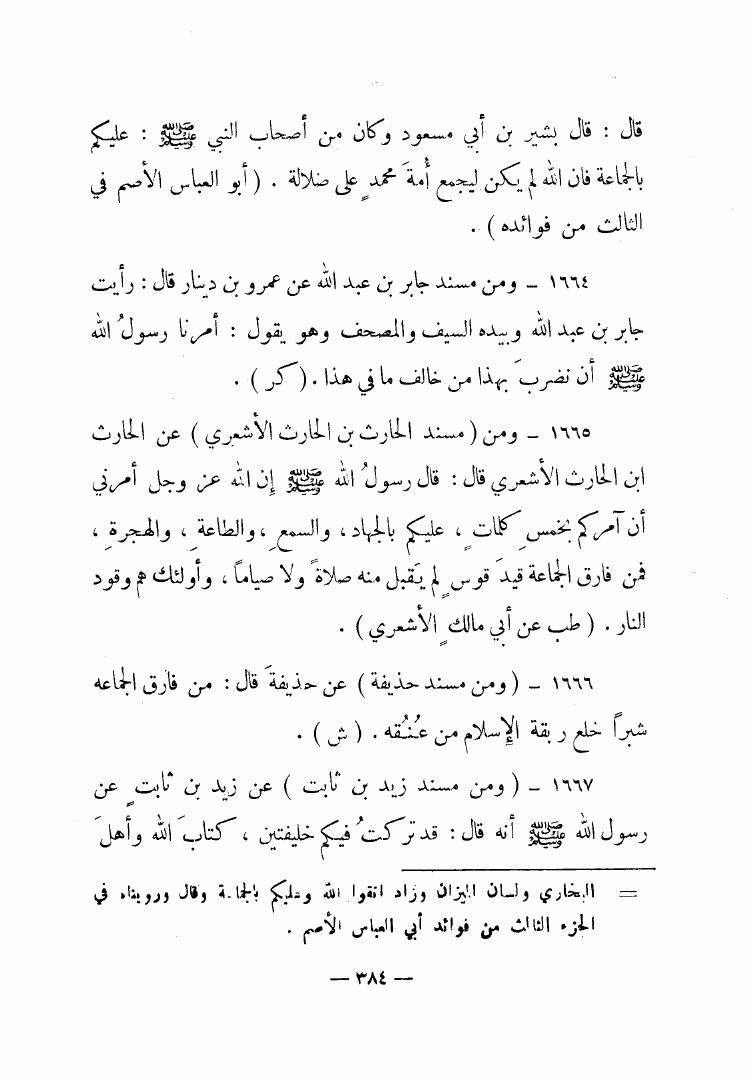 قال : قال بشير بن أبي مسعود وكان من أصحاب النبي ﷺ : عليكم
بالجماعة فان الله لم يكن ليجمع أُمةَ محمدٍ على ضلالة . ( أبو العباس الأصم في
الثالث من فوائده ) .
١٦٦٤ – ومن مسند جابر بن عبد الله عن عمرو بن دينار قال : رأيت
جابر بن عبد الله وبيده السيف والمصحف وهو يقول : أمرنا رسولُ الله
ﷺ أن نضربَ بهذا من خالف ما في هذا . ( كر ) .
١٦٦٥ – ومن ( مسند الحارث بن الحارث الأشعري ) عن الحارث
ابن الحارث الأشعري قال : قال رسولُ الله ﷺ إن الله عز وجل أمرني
أن آمركم بخمسِ كلماتٍ ، عليكم بالجهاد ، والسمعِ ، والطاعةِ ، والهجرةِ ،
فمن فارق الجماعة قيدَ قوسٍ لم يَقبل منه صلاةً ولا صياماً ، وأولئك هم وقود
النار . ( طب عن أبي مالكٍ الأشعري ) .
١٦٦٦ – ( ومن مسند حذيفة ) عن حذيفةَ قال : من فارق الجماعه
شبراً خلع ربقة الإسلام من عُنُقه . ( ش ) .
١٦٦٧ – ( ومن مسند زيد بن ثابت ) عن زيد بن ثابتٍ عن
رسول الله ﷺ أنه قال : قد تركتُ فيكم خليفتين ، كتابَ الله وأهلَ
= البخاري ولسان الميزان وزاد اتقوا الله وعليكم بالجماعة وقال ورويناه في
الجزء الثالث من فوائد أبي العباس الأصم .
— ٣٨٤ —